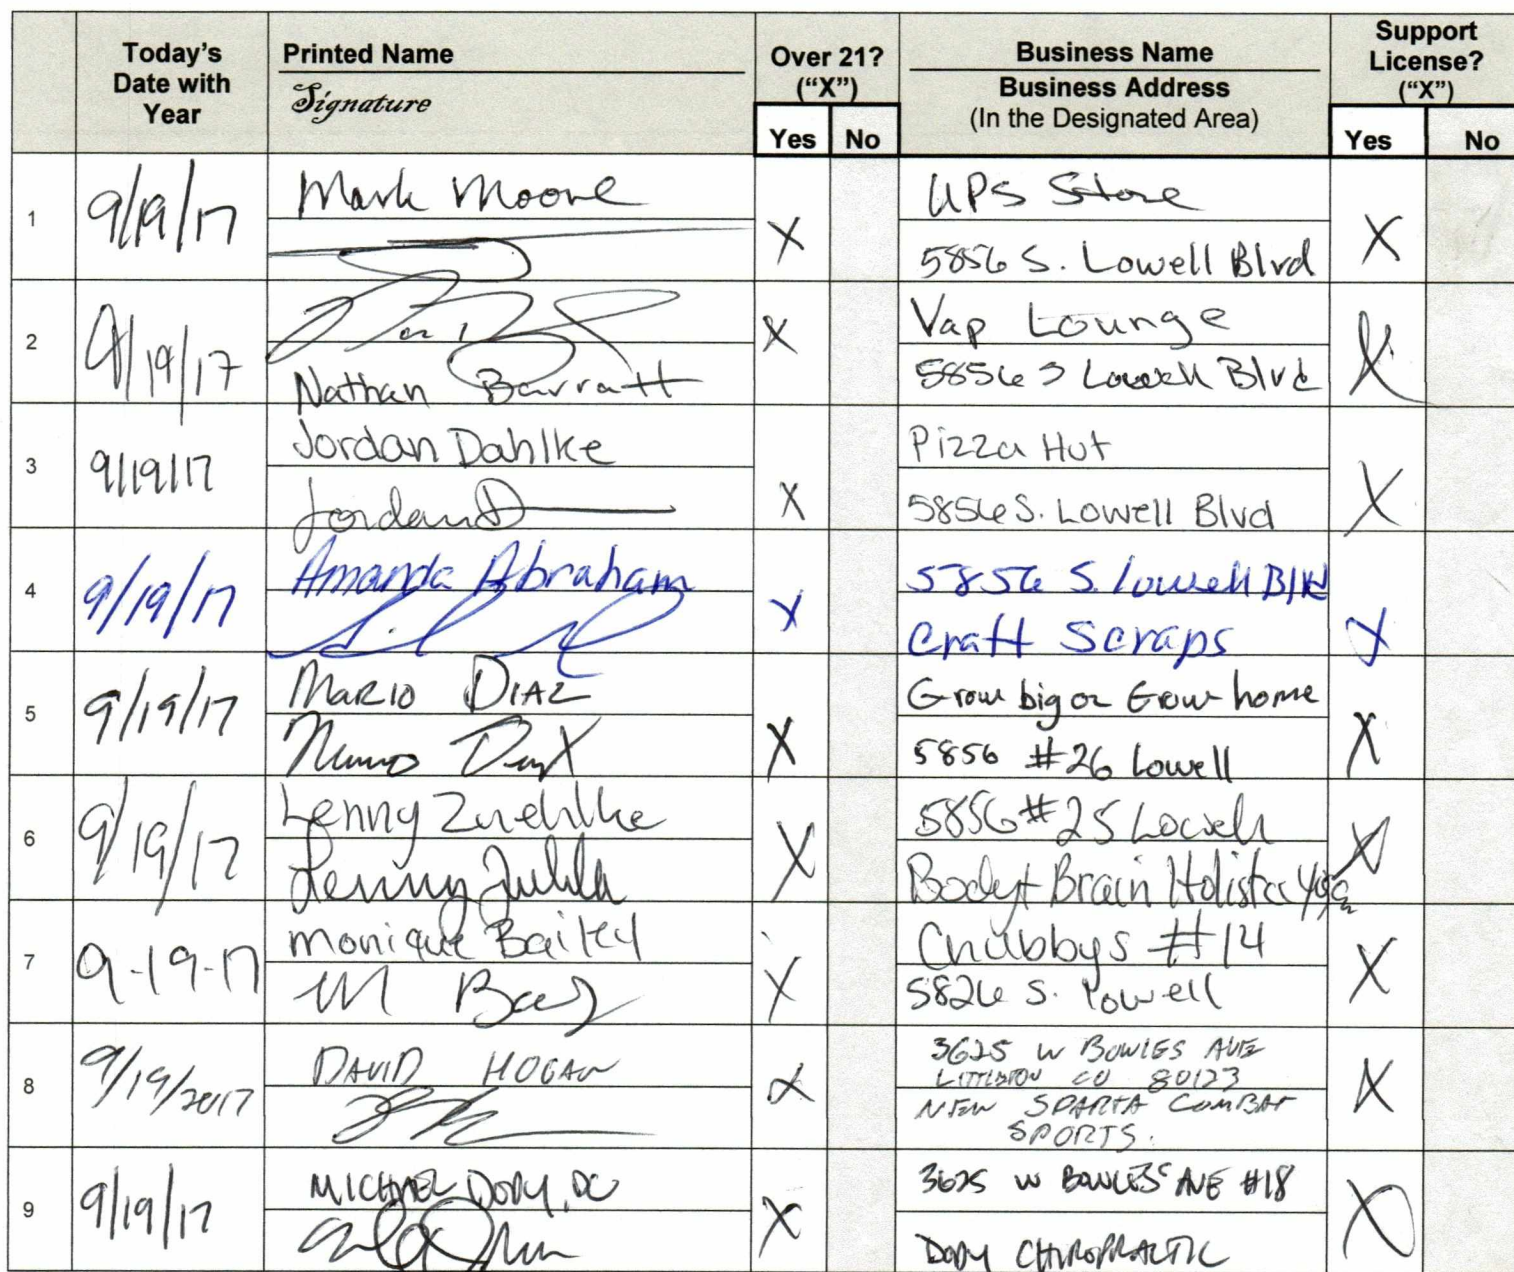 Today's Date with Year
Printed Name
Signature
Over 21? ("X")
Yes No
Business Name
Business Address
(In the Designated Area)
Support License? ("X")
Yes No
1 9/19/17 Mark Moore X UPS Store X
5856 S. Lowell Blvd
2 9/19/17 X Vap Lounge X
Nathan Barratt 5856 S Lowell Blvd
3 9/19/17 Jordan Dahlke X Pizza Hut X
Jordan D 5856 S. Lowell Blvd
4 9/19/17 Amanda Abraham X 5856 S. Lowell Blvd X
Craft Scraps
5 9/19/17 Mario Diaz X Grow big or Grow home X
5856 #26 Lowell
6 9/19/17 Lenny Zuehlke X 5856 #25 Lowell X
Lenny Body + Brain Holistic Yoga
7 9-19-17 Monique Bailey X Chubbys #14 X
M Bai 5826 S. Lowell
8 9/19/2017 DAVID HOGAN X 3625 W BOWLES AVE X
LITTLETON CO 80123
NEW SPARTA COMBAT
SPORTS.
9 9/19/17 MICHAEL DODY, DC X 3625 W BOWLES AVE #18 X
DODY CHIROPRACTIC